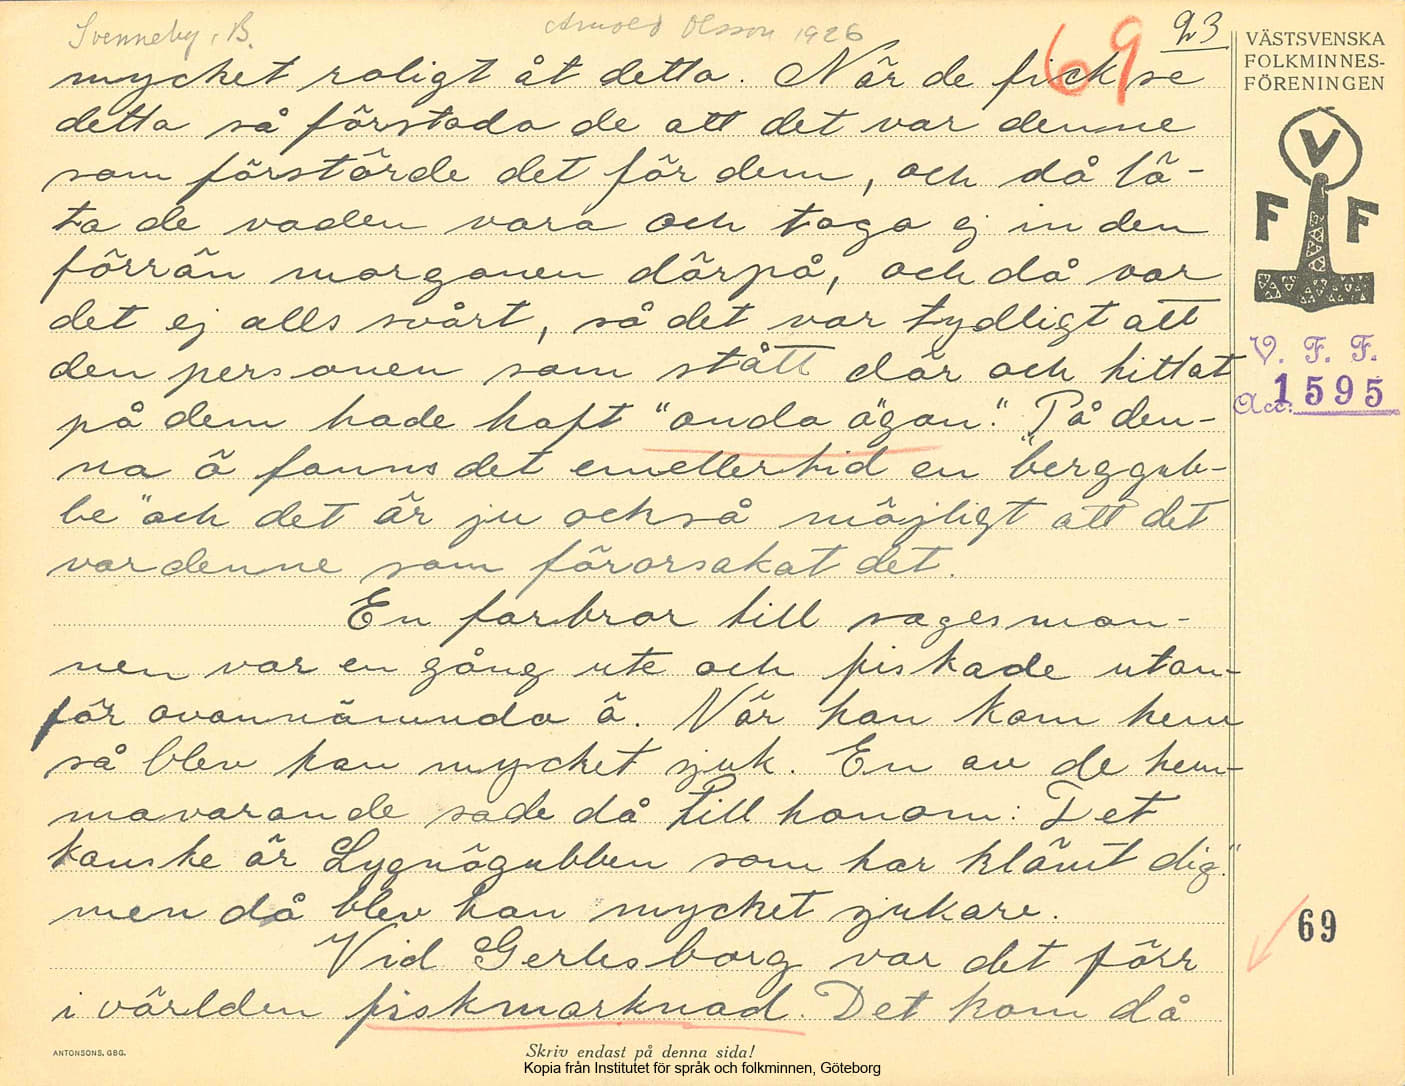 Svenneby, B.
Arnold Olsson 1926
69
23
VÄSTSVENSKA
FOLKMINNES-
FÖRENINGEN
mycket roligt åt detta. När de fick se
detta så förstodo de att det var denne
som förstörde det för dem, och då lä-
to de vaden vara och togo ej in den
förrän morgonen därpå, och då var
det ej alls svårt, så det var tydligt att
den personen som stått där och tittat
på dem hade haft "onda ögon". På den-
na ö fanns det emellertid en "berggub-
be" och det är ju också möjligt att det
var denne som förorsakat det.
En farbror till sagesman-
nen var en gång ute och fiskade utan-
för ovannämnda ö. När han kom hem
så blev han mycket sjuk. En av de hem-
mavarande sade då till honom: Det
kanske är Lygnögubben som har klämt dig."
men då blev han mycket sjukare.
Vid Gerlesborg var det förr
i världen fiskmarknad. Det kom då
V
F F
V. F. F.
Acc: 1595
69
ANTONSONS, GBG.
Skriv endast på denna sida!
Kopia från Institutet för språk och folkminnen, Göteborg